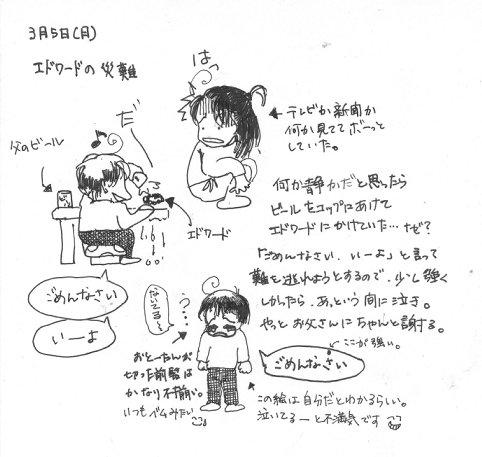 3月5日(月)
エドワードの災難
はっ
だー
父のビール
エドワード
テレビか新聞か
何か見ててボーっと
していた。
何か静かだと思ったら
ビールをコップにあけて
エドワードにかけていた…なぜ?
「ごめんなさい、いーよ」と言って
難を逃れようとするので、少し強く
しかったら、あっという間に泣き。
やっとお父さんにちゃんと謝する。
ここが強い。
ごめんなさい
いーよ
泣いてるー
う…?
おとーたんが
切った前髪は
かなり不揃い。
いつもベムみたい
ごめんなさい
この絵は自分だとわかるらしい。
泣いてるーと不満気です